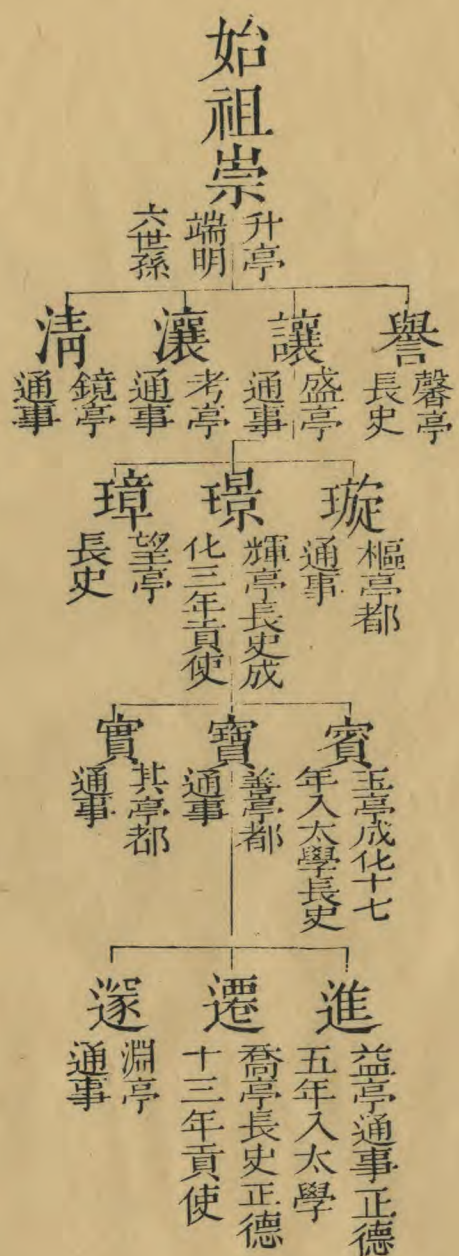 始祖崇
升亭
端明
六世孫
譽
馨亭
長史
讓
盛亭
通事
瀼
考亭
通事
清
鏡亭
通事
璇
樞亭都
通事
璟
輝亭長史成
化三年貢使
璋
望亭
長史
賓
玉亭成化十七
年入太學長史
寶
善亭都
通事
實
其亭都
通事
進
益亭通事正德
五年入太學
遷
喬亭長史正德
十三年貢使
遂
淵亭
通事